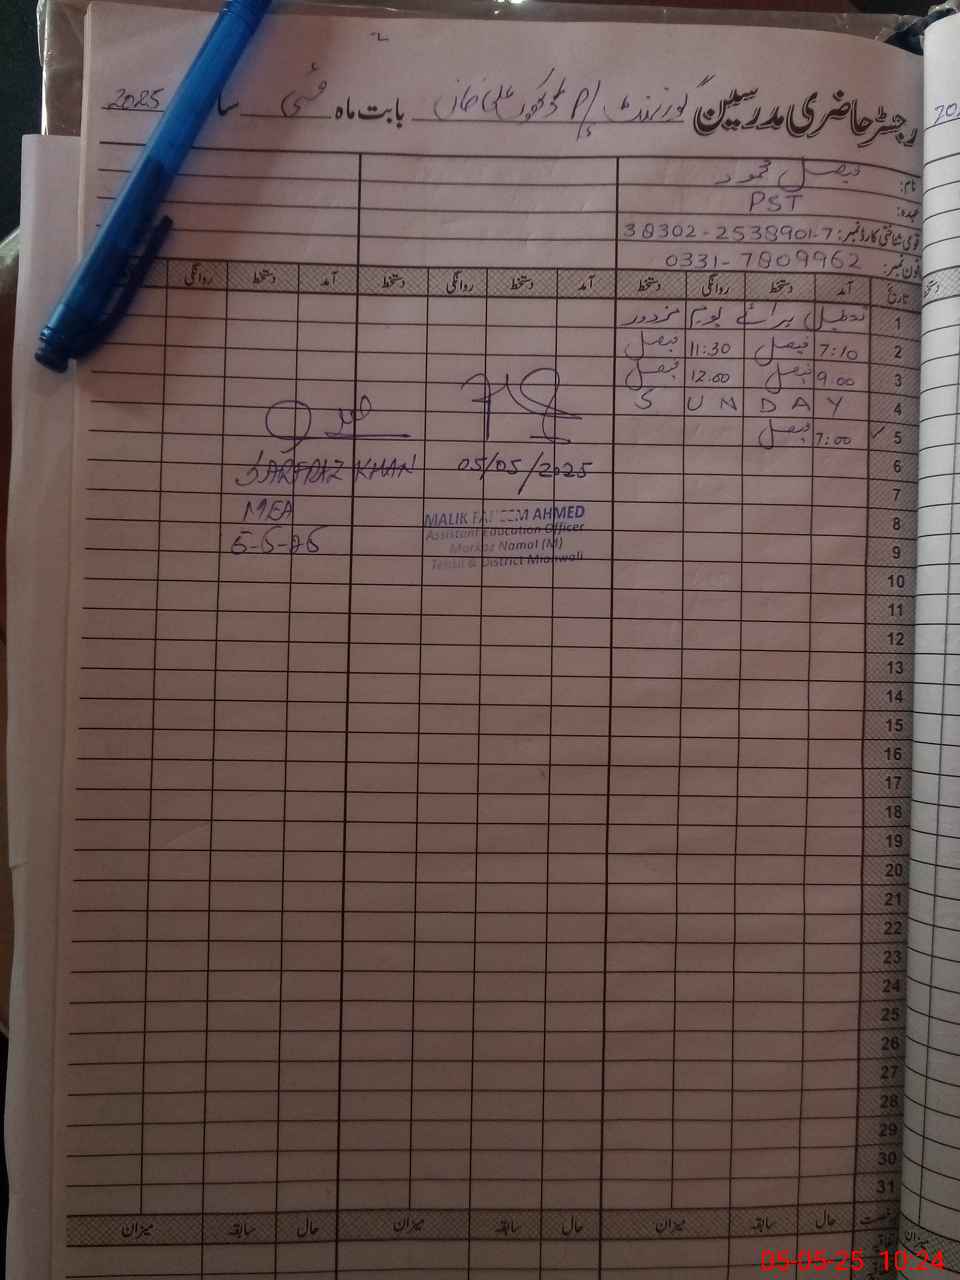 رجسٹر حاضری مدرسین گورنمنٹ P/ س ڈھوک علی خان بابت ماہ مئی سا 2025
نام: فیصل محمود
عہدہ: PST
قومی شناختی کارڈ نمبر: 38302-2538901-7
فون نمبر: 0331-7809962
تاریخ آمد دستخط روانگی دستخط آمد دستخط روانگی دستخط آمد دستخط روانگی
1 تعطیل برائے یوم مزدور
2 7:10 فیصل 11:30 فیصل
3 9.00 فیصل 12.00 فیصل
4 SUNDAY
5 7:00 فیصل
6
7
8
9
10
11
12
13
14
15
16
17
18
19
20
21
22
23
24
25
26
27
28
29
30
31
05/05/2025
MALIK FAHEEM AHMED
Assistant Education Officer
Markaz Namal (M)
Tehsil & District Mianwali
SARFRAZ KHAN
MEA
5-5-25
رخصت حال سابقہ میزان حال سابقہ میزان حال سابقہ میزان
میزان
05-05-25 10:24